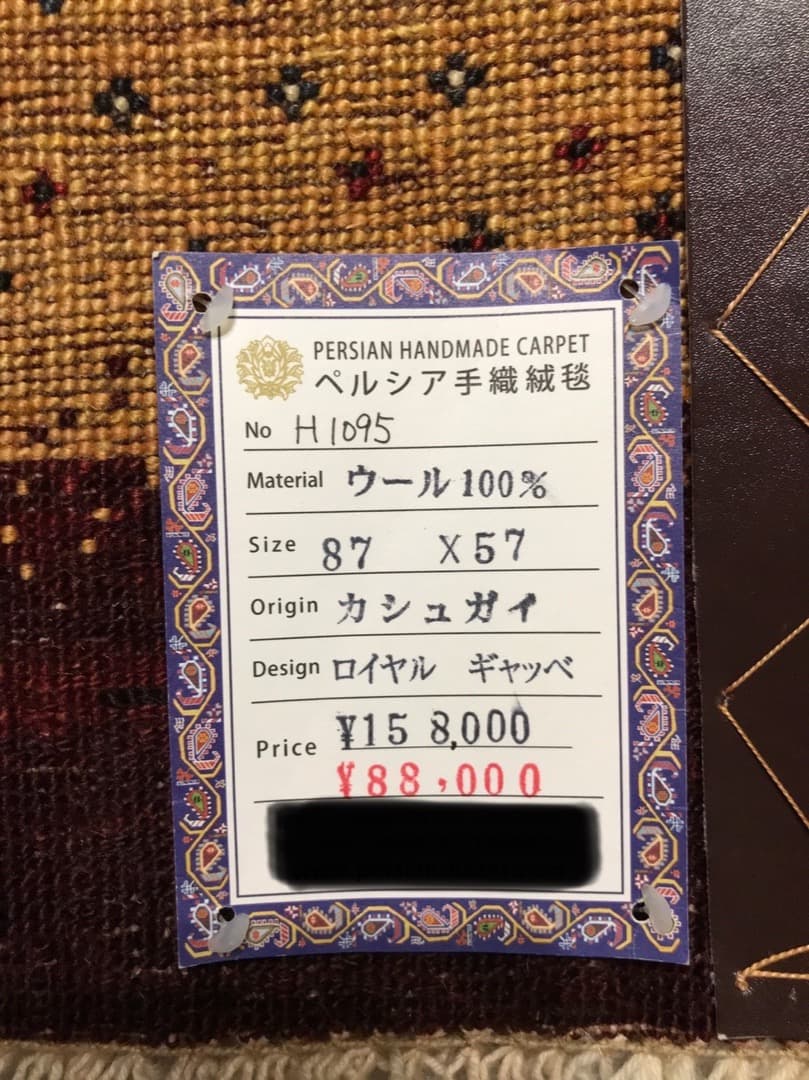 PERSIAN HANDMADE CARPET
ペルシア手織絨毯
No H1095
Material ウール100%
Size 87 X57
Origin カシュガイ
Design ロイヤル ギャッベ
Price ¥158,000
¥88,000